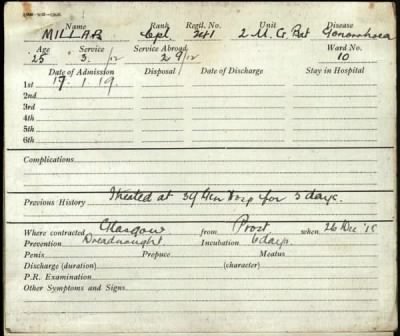 Name Rank Regtl. No. Unit Disease
MILLAR Cpl. 241 2 M.G. Bat Gonorrhoea
Age Service Service Abroad Ward No.
25 3 /12 2 9/12 10
Date of Admission Disposal Date of Discharge Stay in Hospital
1st 17. 1. 19.
2nd
3rd
4th
5th
6th
Complications
Previous History Treated at 39 Gen Hosp for 3 days.
Where contracted Glasgow from Prost when 26 Dec '18
Prevention Dreadnought Incubation 6 days
Penis Prepuce Meatus
Discharge (duration) (character)
P.R. Examination
Other Symptoms and Signs